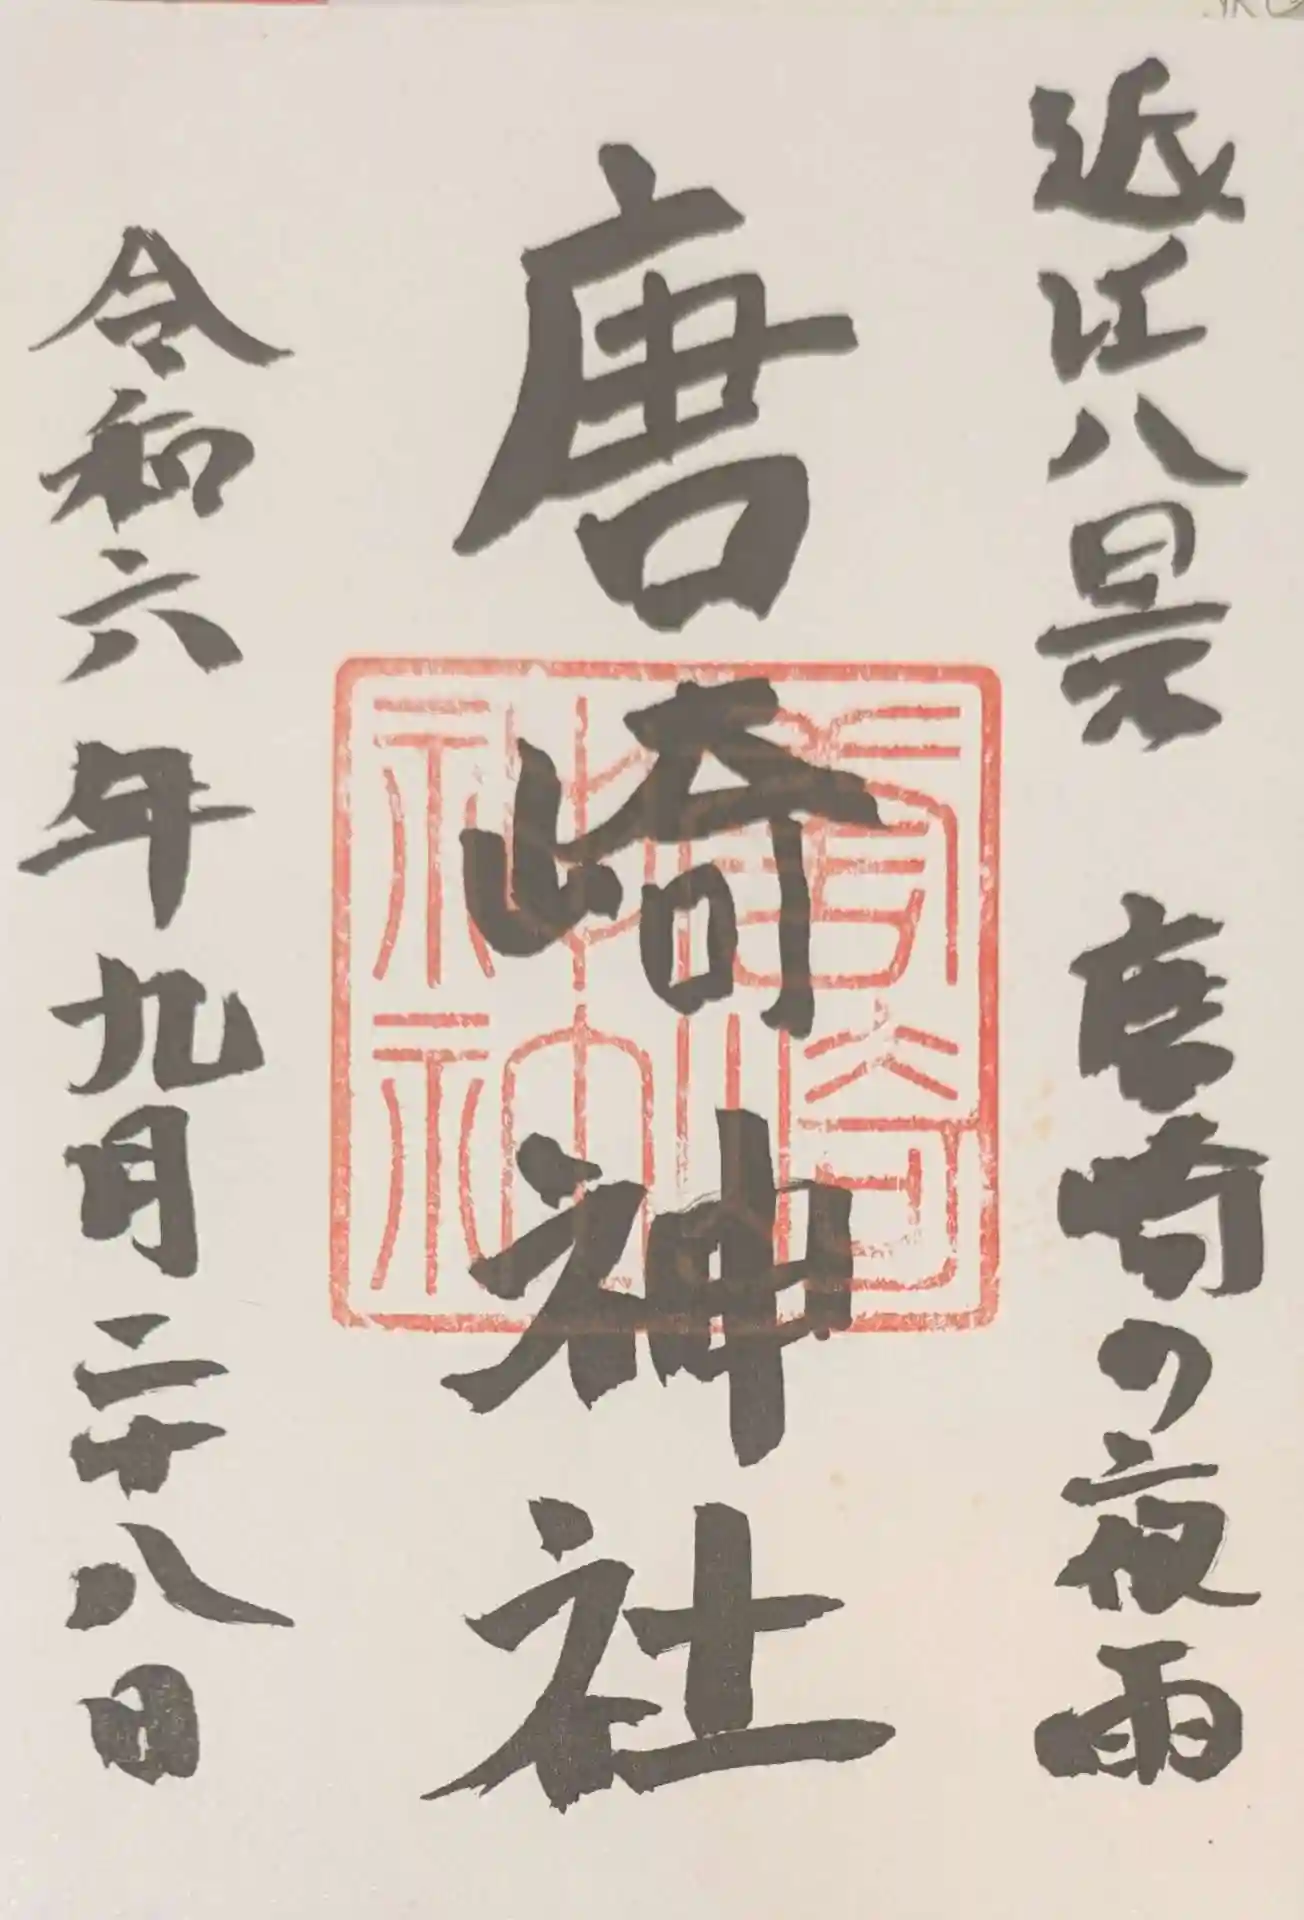 近江八景 唐崎の夜雨
唐崎神社
令和六年九月二十八日
唐崎
神社